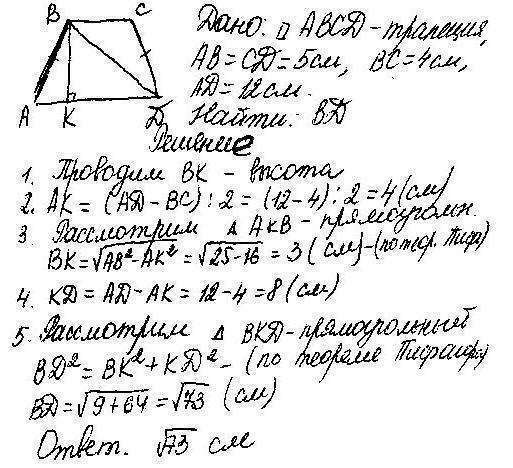 B C
A K D
Дано: ▱ ABCD - трапеция,
AB = CD = 5см, BC = 4см,
AD = 12см.
Найти: BD
Решение
1. Проводим BK - высота
2. AK = (AD - BC) : 2 = (12 - 4) : 2 = 4 (см)
3. Рассмотрим Δ AKB - прямоугольн.
BK = √AB² - AK² = √25 - 16 = 3 (см) - (по теор. Пиф)
4. KD = AD - AK = 12 - 4 = 8 (см)
5. Рассмотрим Δ BKD - прямоугольный
BD² = BK² + KD² - (по теореме Пифагора)
BD = √9 + 64 = √73 (см)
Ответ. √73 см